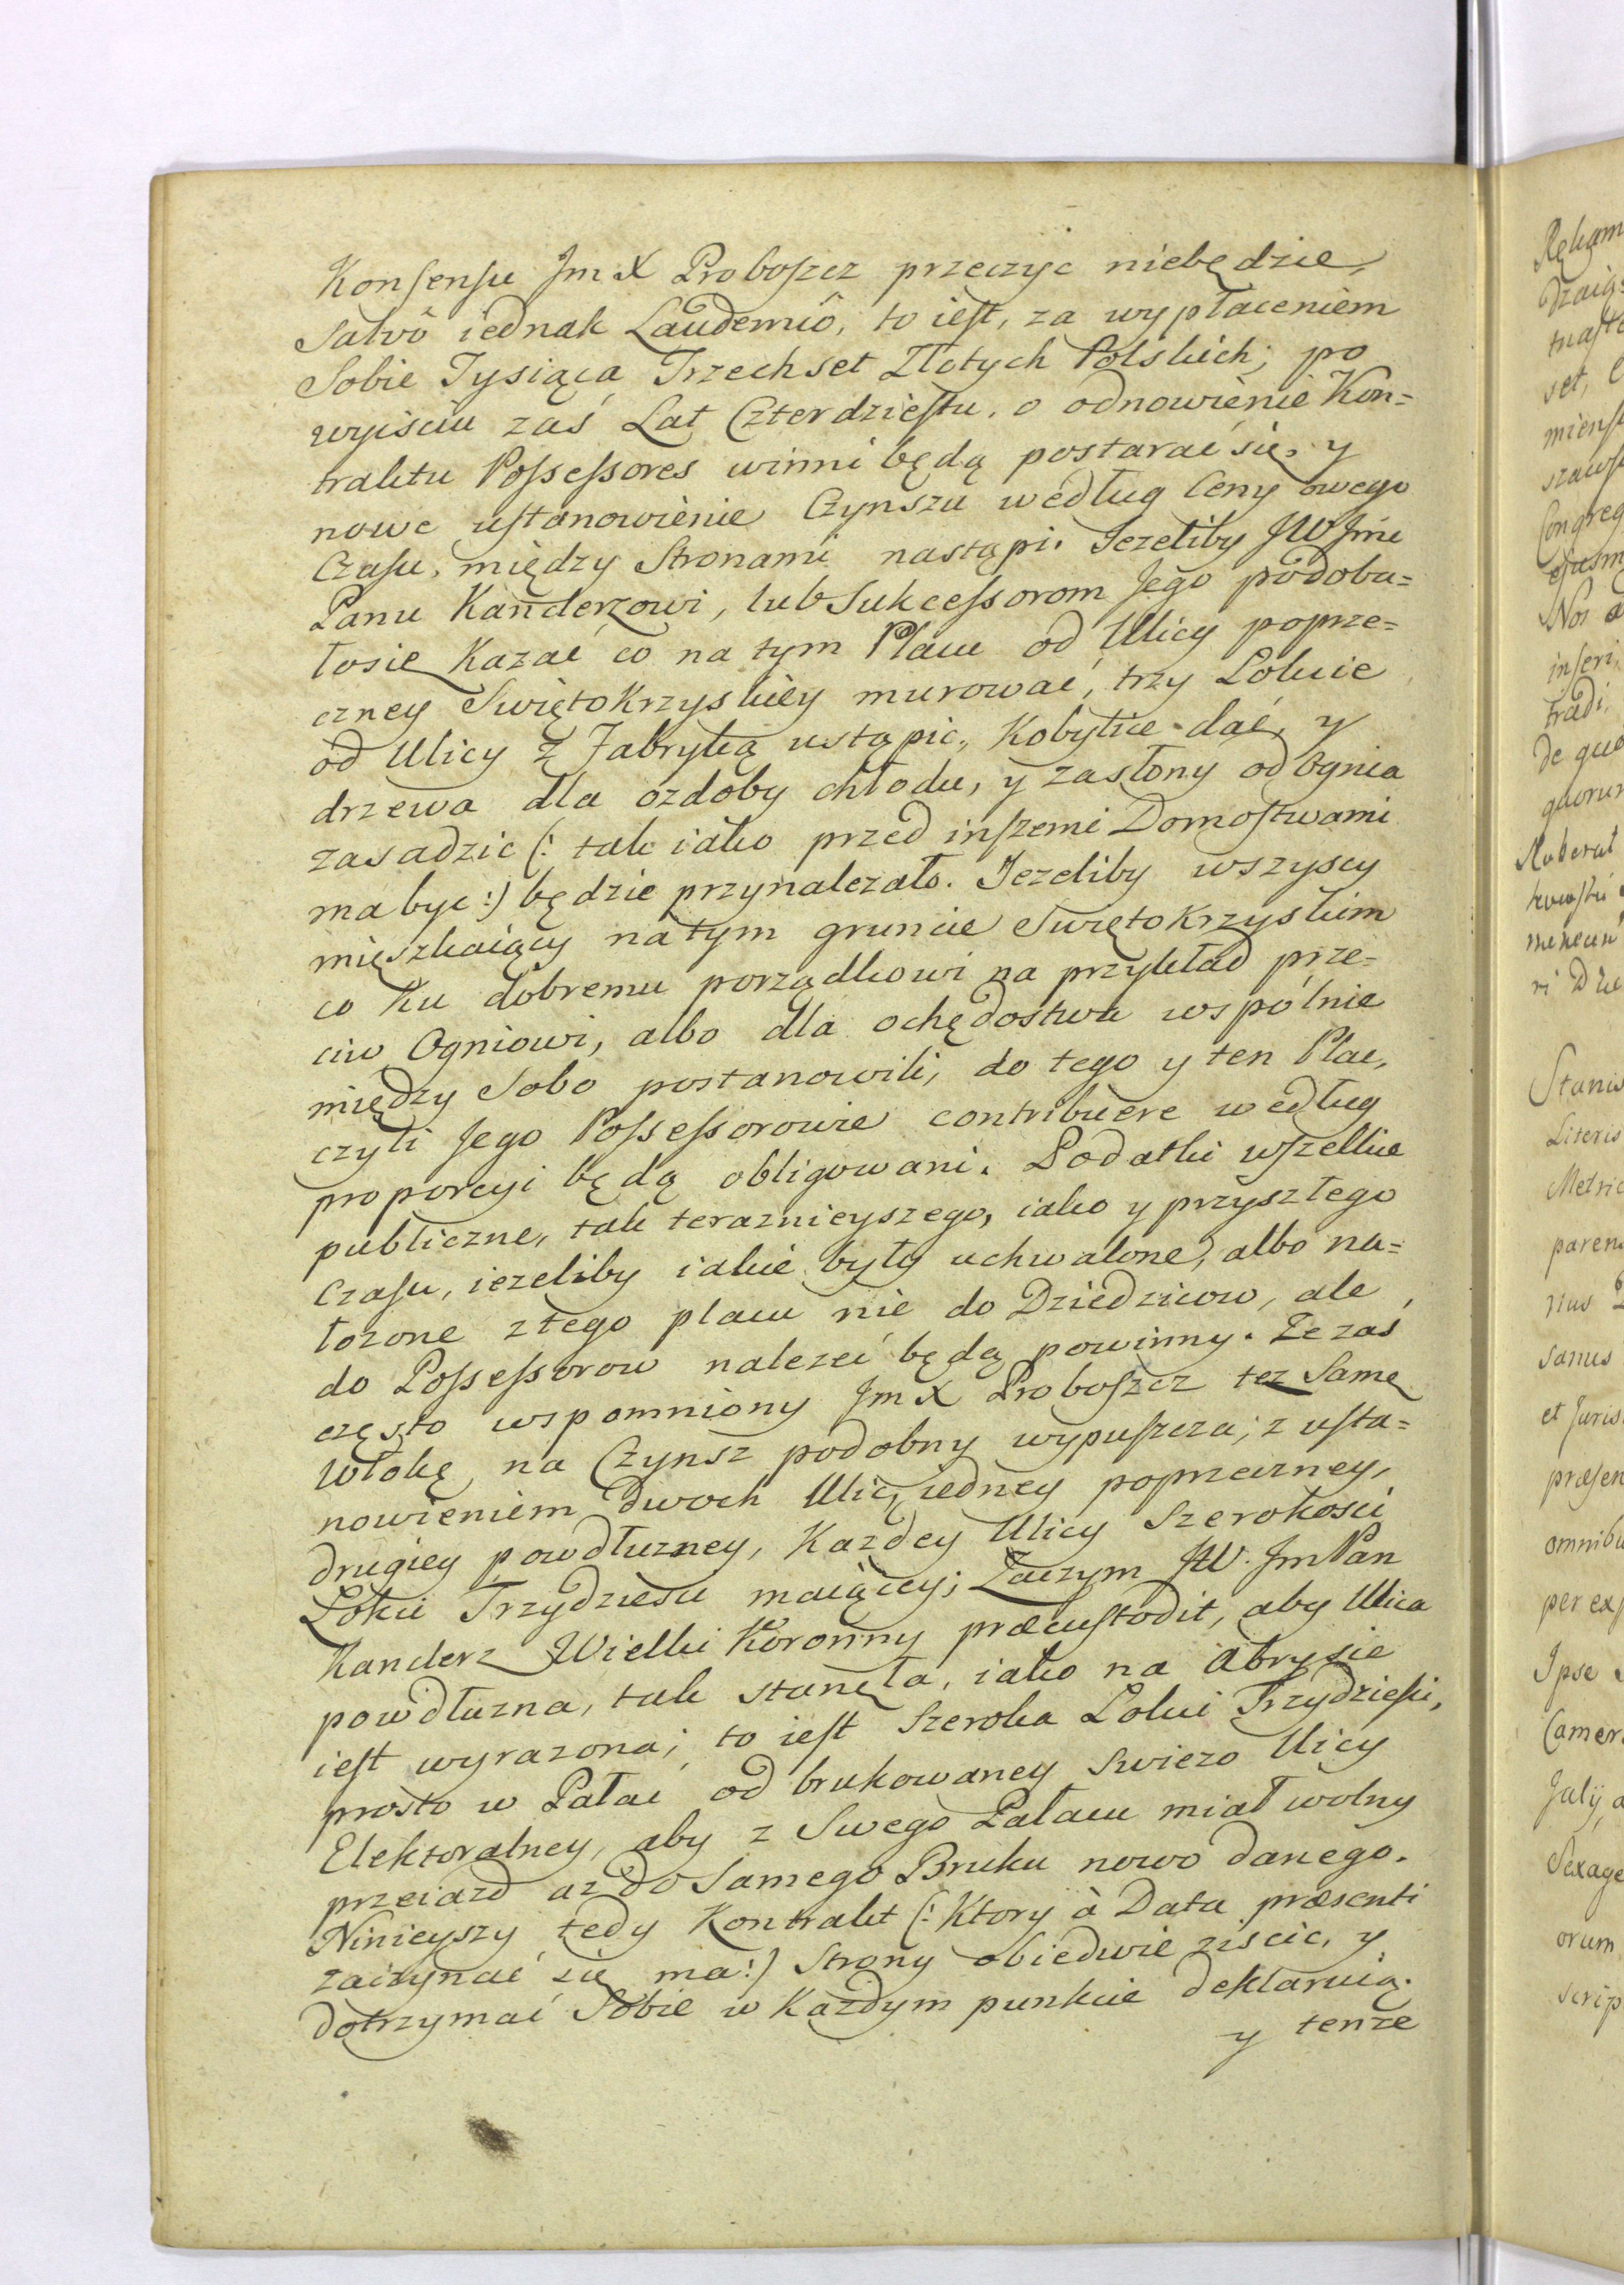 Konsensu Jm X Proboszcz przeczyć niebędzie,
Salvô iednak Laudemiô, to iest, za wypłaceniem
Sobie Tysiąca Trzechset Złotych Polskich; po
wyiściu zaś Lat Czterdziestu, o odnowienie Kon=
traktu Possessores winni będą postarać się, y
nowe ustanowienie Czynszu według Ceny owego
Czasu, między Stronami nastąpi. Jezeliby JW Jmu
Panu Kanclerzowi, lub Sukcessorom Jego podoba=
łosię Kazać co na tym Placu od Ulicy poprze=
czney SwiętoKrzyskiey murować, trzy Łokcie
od Ulicy z Fabryką ustąpic, Kobylice dać, y
drzewa dla ozdoby chłodu, y zasłony od Ognia
zasadzic (: tak iako przed inszemi Domostwami
ma byc :) będzie przynalezało. Jezeliby wszyscy
mięszkaiący na tym gruncie SwiętoKrzyskim
co Ku dobremu porządkowi na przykład prze=
ciw Ogniowi, albo dla ochędostwa wspólnie
między Sobo postanowili, do tego y ten Plac,
czyli Jego Possessorowie contribuere według
proporcyi będą obligowani. Podatki wszelkie
publiczne, tak teraznieyszego, iako y przyszłego
Czasu, iezeliby iakie były uchwalone, albo na=
łozone z tego placu nie do Dziedzicow, ale
do Possessorow nalezeć będą powinny. Ze zaś
często wspomniony Jm X Proboszcz tez Samę
Włokę, na Czynsz podobny wypuszcza; z usta=
nowieniem dwoch Ulic, iedney poprzeczney,
drugiey powdłuzney, Kazdey Ulicy Szerokości
Łokci Trzydziesci maiącey; Zaczym JW. Jm Pan
Kanclerz Wielki Koronny præcustodit, aby Ulica
powdłuzna, tak stanęła, iako na Abrysie
iest wyrazona; to iest Szeroka Łokci Trzydzieści,
prosto w Pałac od brukowaney Swiezo Ulicy
Elektoralney, aby z Swego Pałacu miał wolny
przeiazd az do Samego Bruku nowo danego.
Ninieyszy tedy Kontrakt (: Ktory à Data præsenti
zaczynać się ma :) Strony obiedwie ziscic, y
dotrzymać Sobie w Kazdym punkcie deklaruią.
y tenze